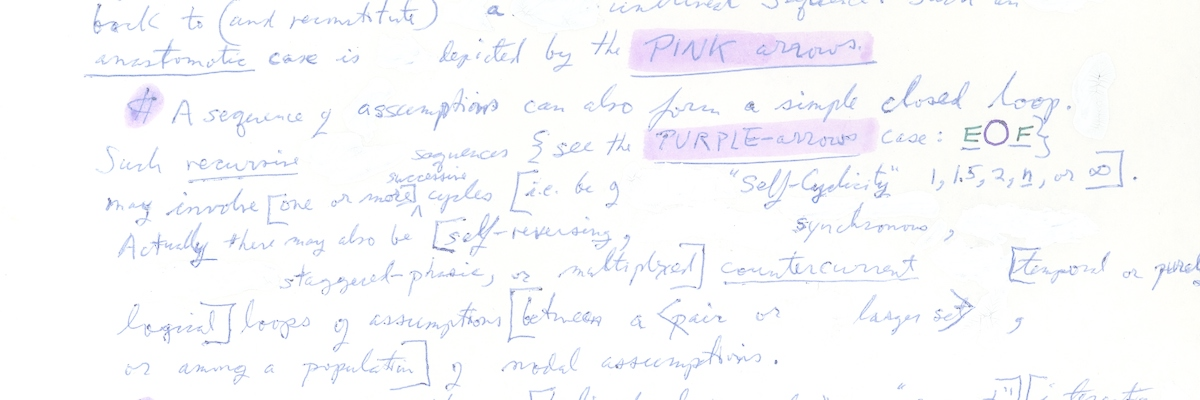 back to (and reconstitute) a
anastomotic case is depicted by the PINK arrows.
# A sequence of assumptions can also form a simple closed loop.
Such recursive sequences {see the PURPLE-arrows case: EOF}
may involve [one or more] successive cycles [i.e. be of "Self-Cyclicity" 1, 1.5, 2, n, or ∞].
Actually there may also be [self-reversing, synchronous,
staggered-phasic, or multiplexed] countercurrent [temporal or purely
logical] loops of assumptions [between a <pair or larger set>,
or among a population] of nodal assumptions.